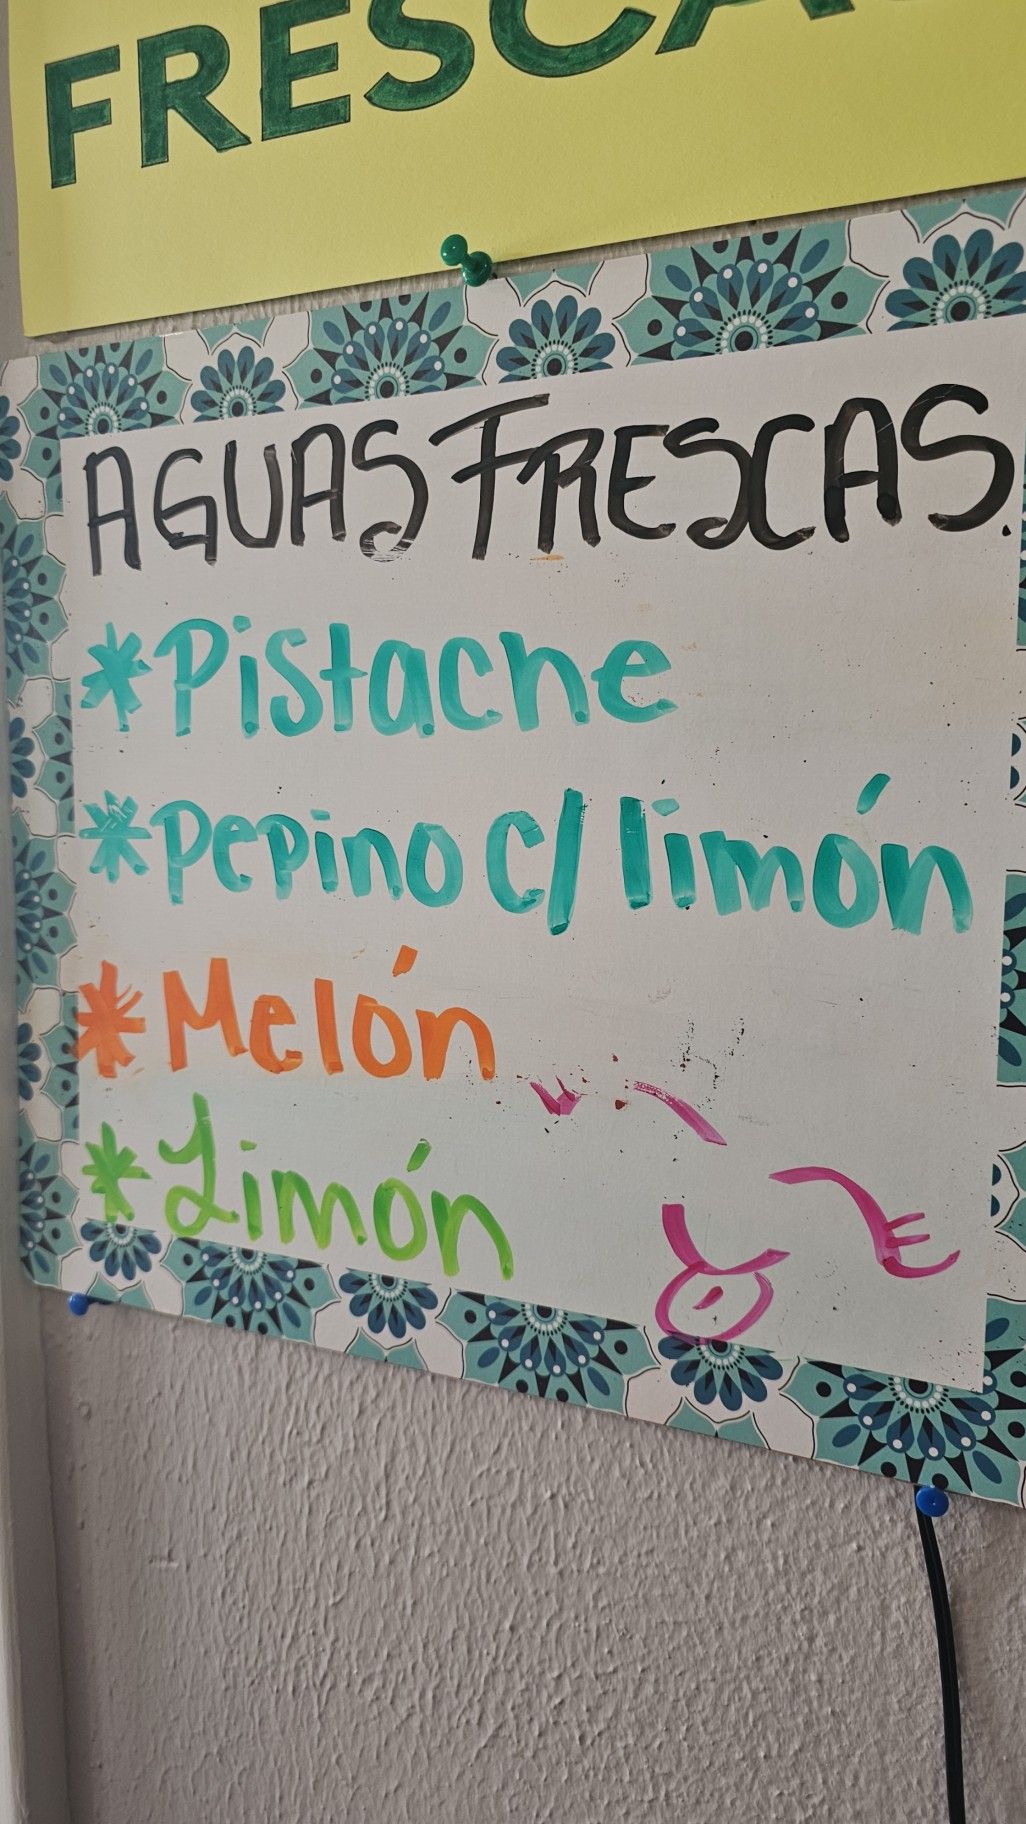 FRESCA
AGUAS FRESCAS.
*Pistache
*Pepino c/ limón
*Melón
*Limón